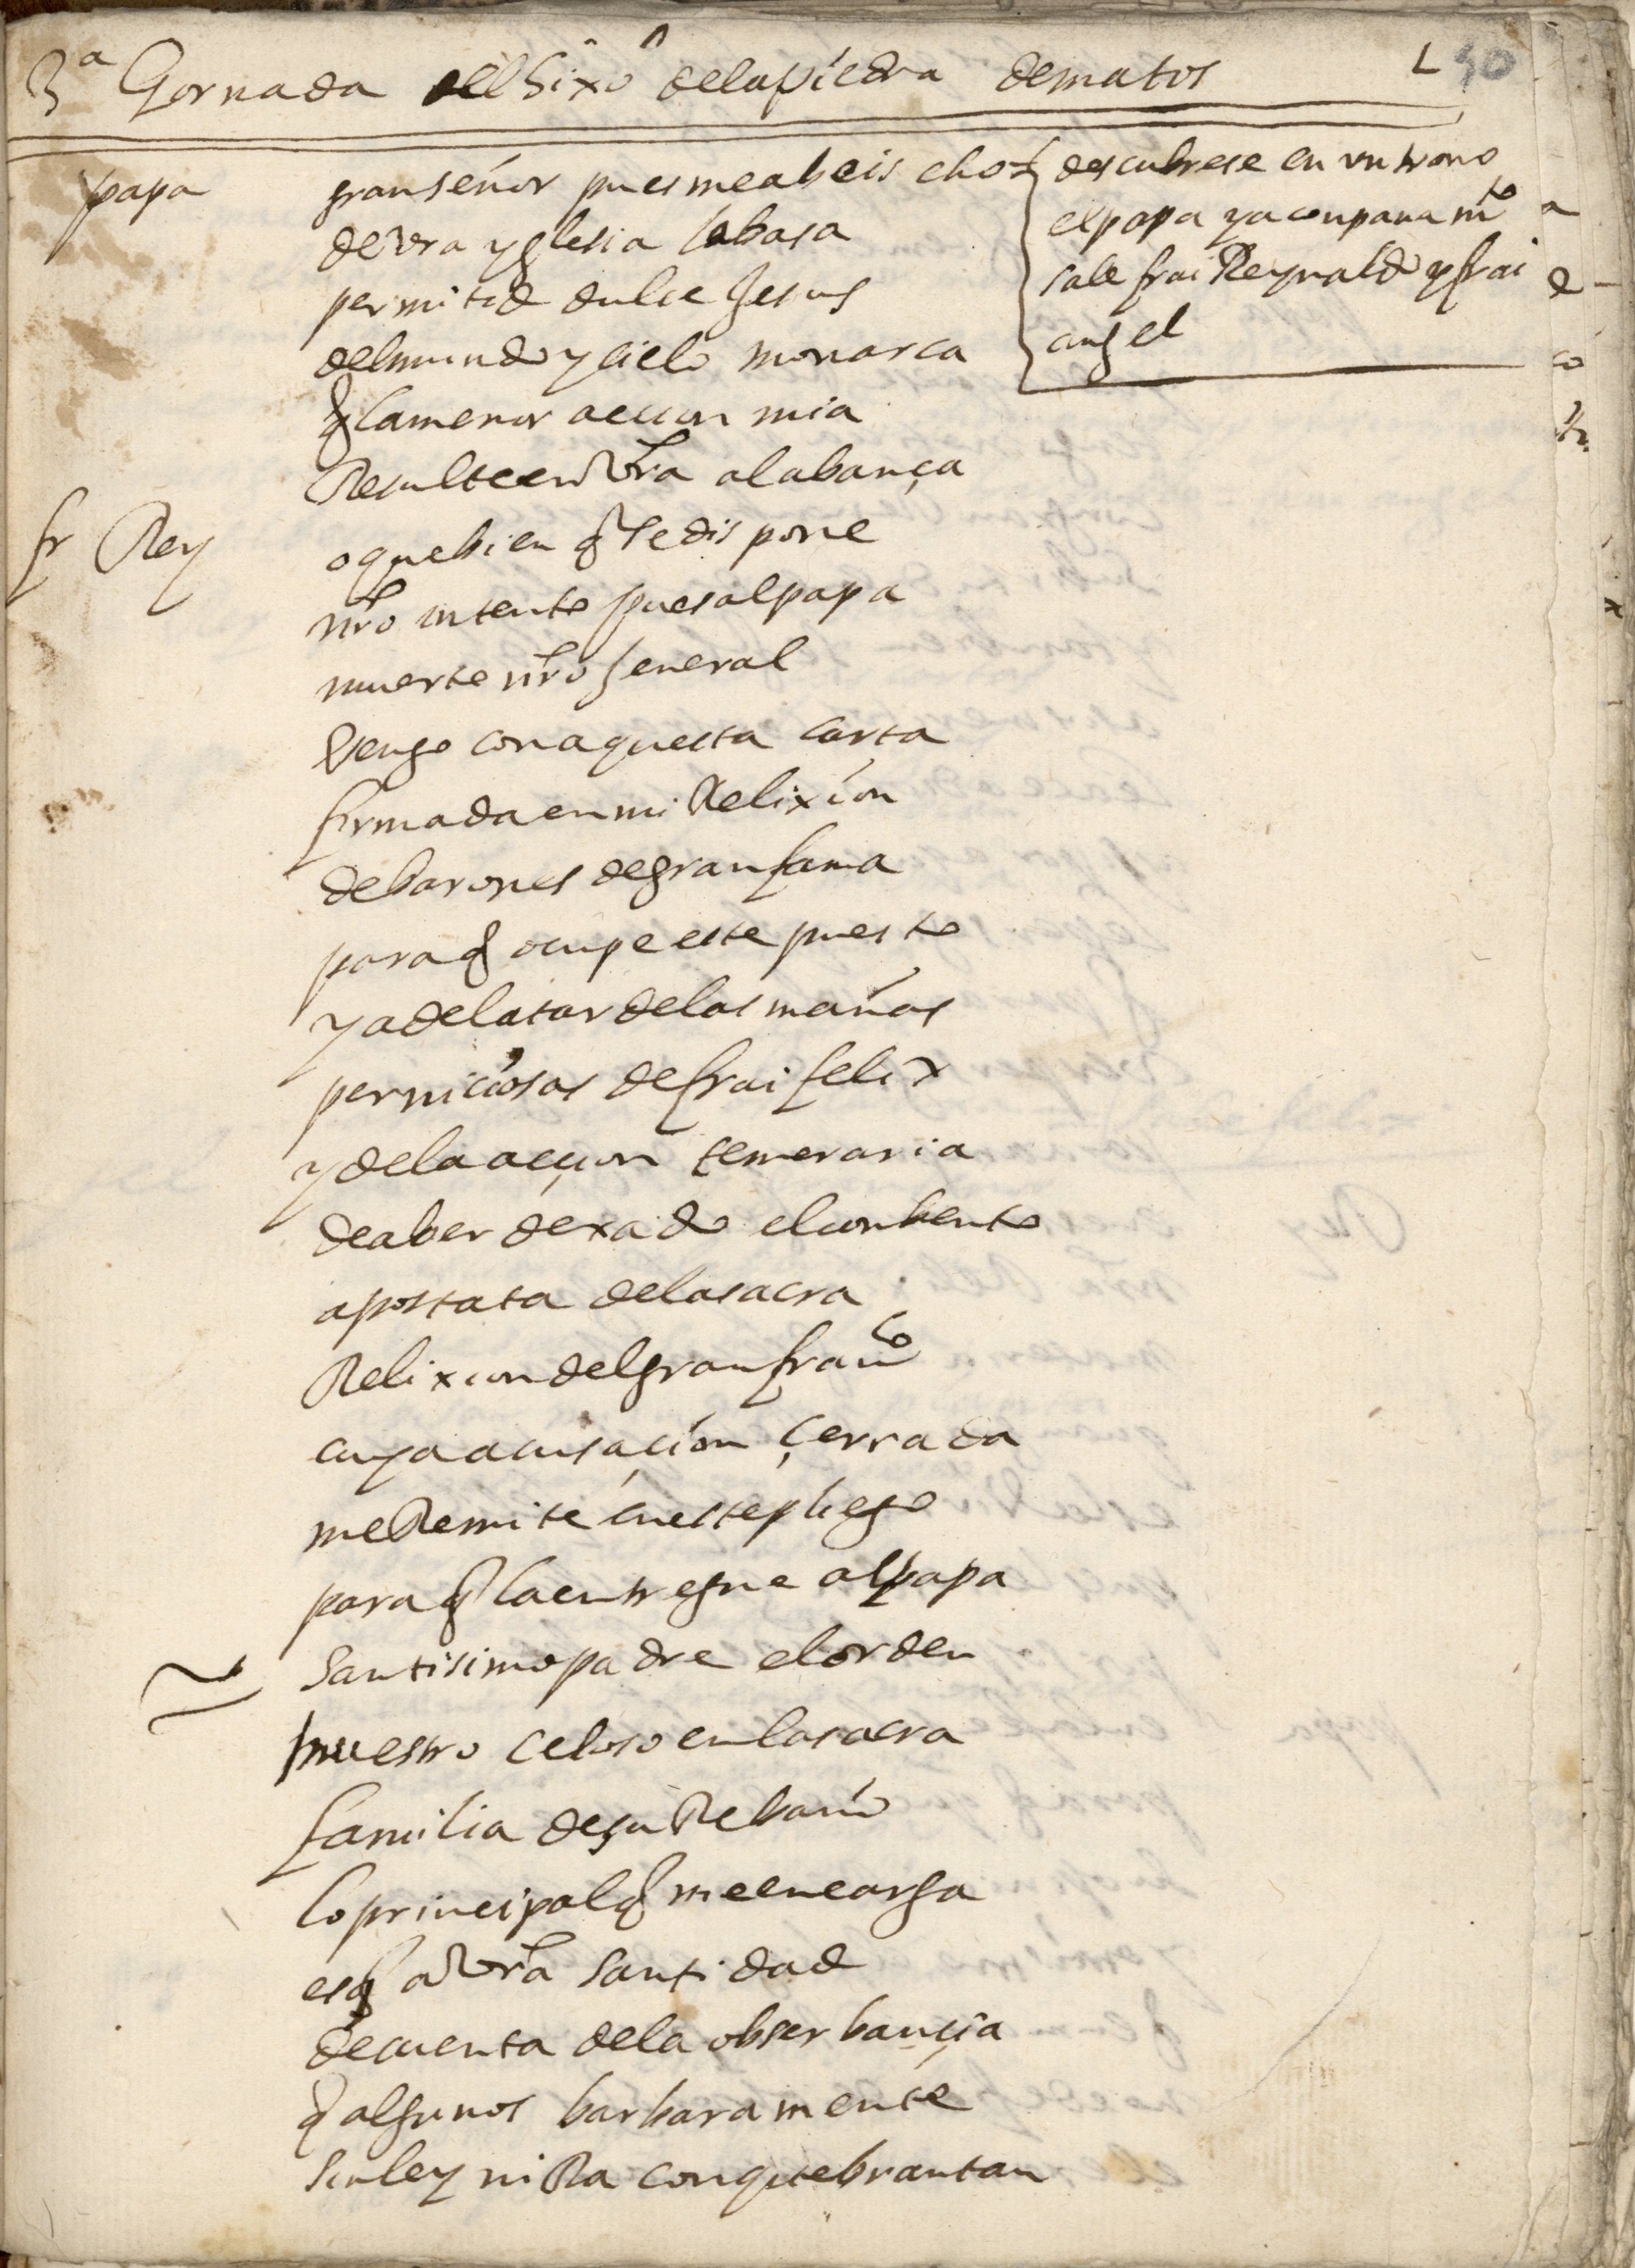 3ª Gornada del hixo de la piedra de matos 50
descubrese en vn trono
el papa y aconpanamto
sale frai Reynaldo y frai
angel
papa gran señor pues me abeis echo
de vra yglesia la basa
permitid dulce Jesus
del mundo y cielo monarca
q la menor accion mia
Resulte en vra alabança
fr Rey o que bien q se dispone
nro intento pues al papa
muerte nro Jeneral
Vengo con aquesta carta
firmada en mi Relixion
de barones de gran fama
para q ocupe este puesto
y a delatar de las mañas
perniciosas de frai felix
y de la acçion temeraria
de aber dexado el conbento
apostata de la sacra
Relixion del gran franco
cuya acusaçion çerrada
me Remite en este pliego
para q la entregue al papa
Santisimo padre el orden
nuestro celoso en la sacra
familia de su Rebaño
lo principal q me encarga
es q a vra santidad
de cuenta de la obserbançia
q algunos barbaramente
sin ley ni Raçon quebrantan